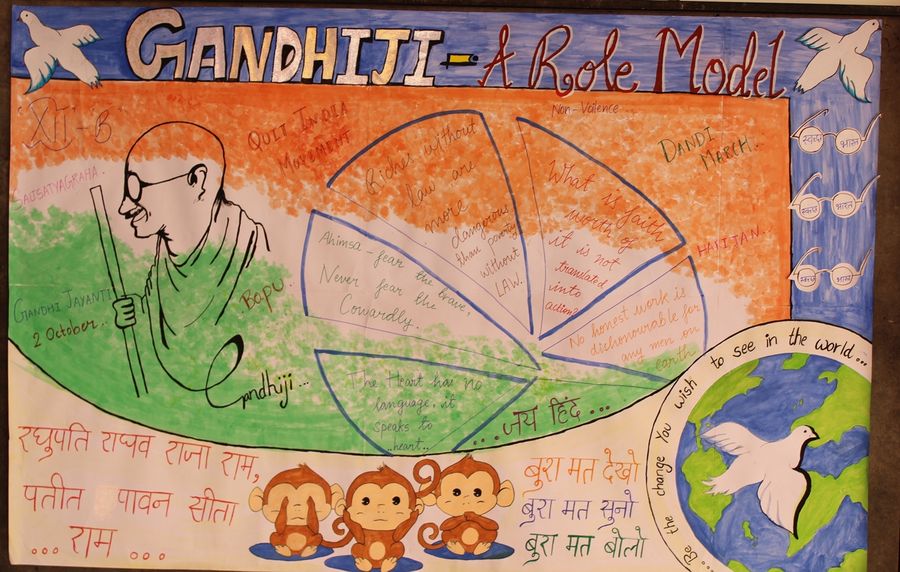 GANDHIJI - A Role Model
XII - B
QUIT INDIA
MOVEMENT
Non-Voilence...
DANDI
MARCH.
SATYAGRAHA.
HARIJAN..
GANDHI JAYANTI
2 October..
Bapu.
Gandhiji...
Riches without
law are
more
dangerous
than poverty
without
LAW.
What is faith
worth of
it is not
translated
into
action?
Ahimsa-fear the brave,
Never fear the
Cowardly.
No honest work is
dishonourable for
any men on
earth
The Heart has no
language, it
speaks to
..heart..
...जय हिंद...
स्वच्छ भारत
स्वच्छ भारत
स्वच्छ भारत
रघुपति राघव राजा राम,
पतीत पावन सीता
... राम ...
बुरा मत देखो
बुरा मत सुनो
बुरा मत बोलो
Be the change You wish to see in the world...